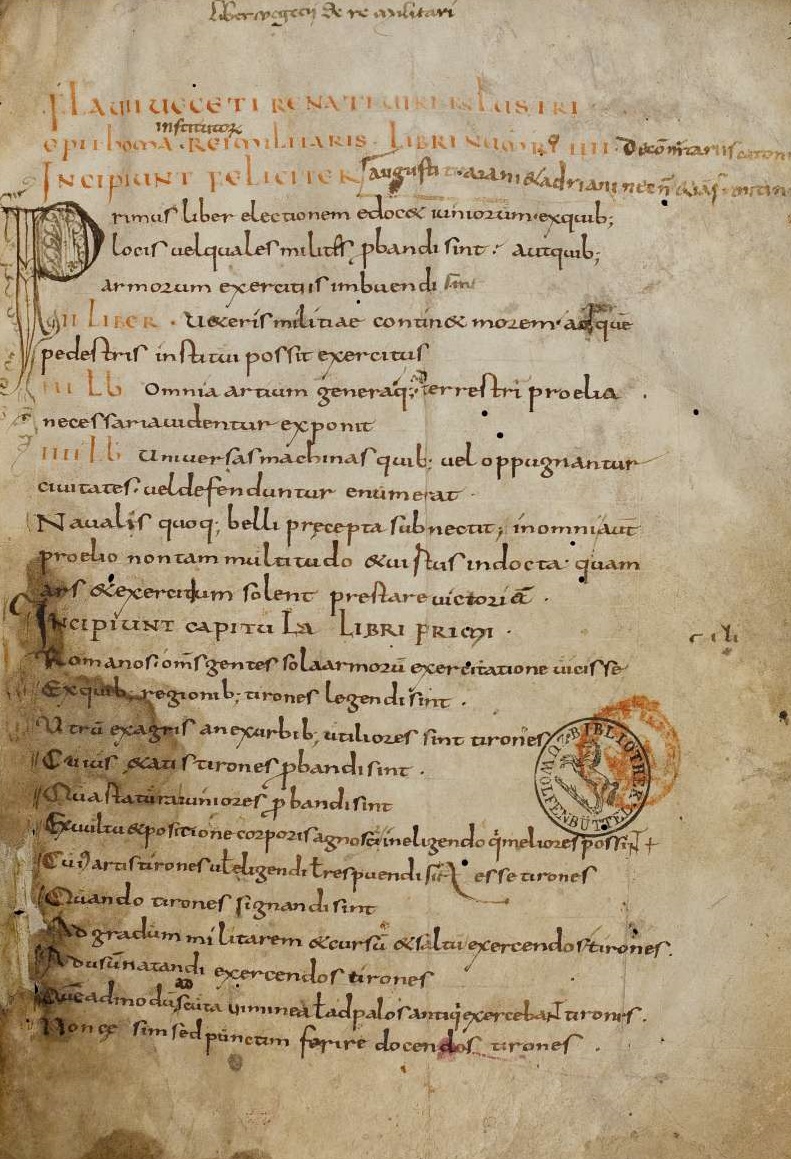 Liber vegecii de re militari
FLAVII VEGETI RENATI VIRI INLUSTRI
institutor
epithoma Rei militaris. LIBRI NUMERO IIII De comtariis caton
INCIPIUNT FELICITER augusti traiani & adriani necn
Primus liber electionem edoc& iuniorum exquib;
locis uelquales milites pbandi sint. autquib;
armorum exercitiis imbuendi sint
LIBER. U&eris militiae contin& morem adque
pedestris institui possit exercitus
III Lb Omnia artium generaq; terrestri proelia
necessaria uidentur exponit
IIII Lb Uniuersas machinas quib; uel oppugnantur
ciuitates uel defenduntur enumerat.
Naualis quoq; belli precepta subnectit, in omni aut
proelio non tam multitudo & uirtus indocta quam
ars & exercitium solent prestare uictoriā.
INCIPIUNT CAPITULA LIBRI PRIMI.
Romanos oms gentes sola armorū exercitatione uicisse
Exquib; regionib; tirones legendi sint.
Utrū ex agris an exurbib; utiliores sint tirones
Cuius &atis tirones pbandi sint.
Qua statura iuniores pbandi sint
Exuultu & positione corporis agnosci in eligendo q meliores possint
Cui artis tirones uł eligendi ł respuendi sint esse tirones
Quando tirones signandi sint
Ad gradum militarem & cursū & saltū exercendos tirones.
Ad usū natandi exercendos tirones
Quēadmodū ad scuta uiminea ł ad palos antiqi exercebant tirones.
Non cesim sed punctim ferire docendos tirones.
BIBLIOTHEK WOLFENBÜTTEL